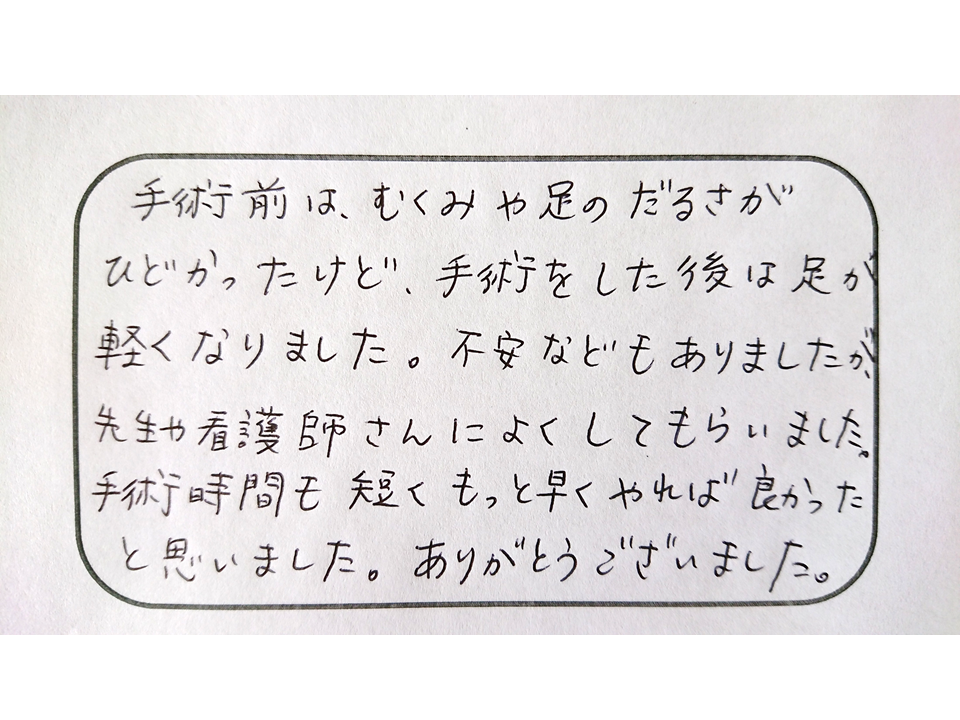 手術前は、むくみや足のだるさが
ひどかったけど、手術をした後は足が
軽くなりました。不安などもありましたが、
先生や看護師さんによくしてもらいました。
手術時間も短くもっと早くやれば良かった
と思いました。ありがとうございました。